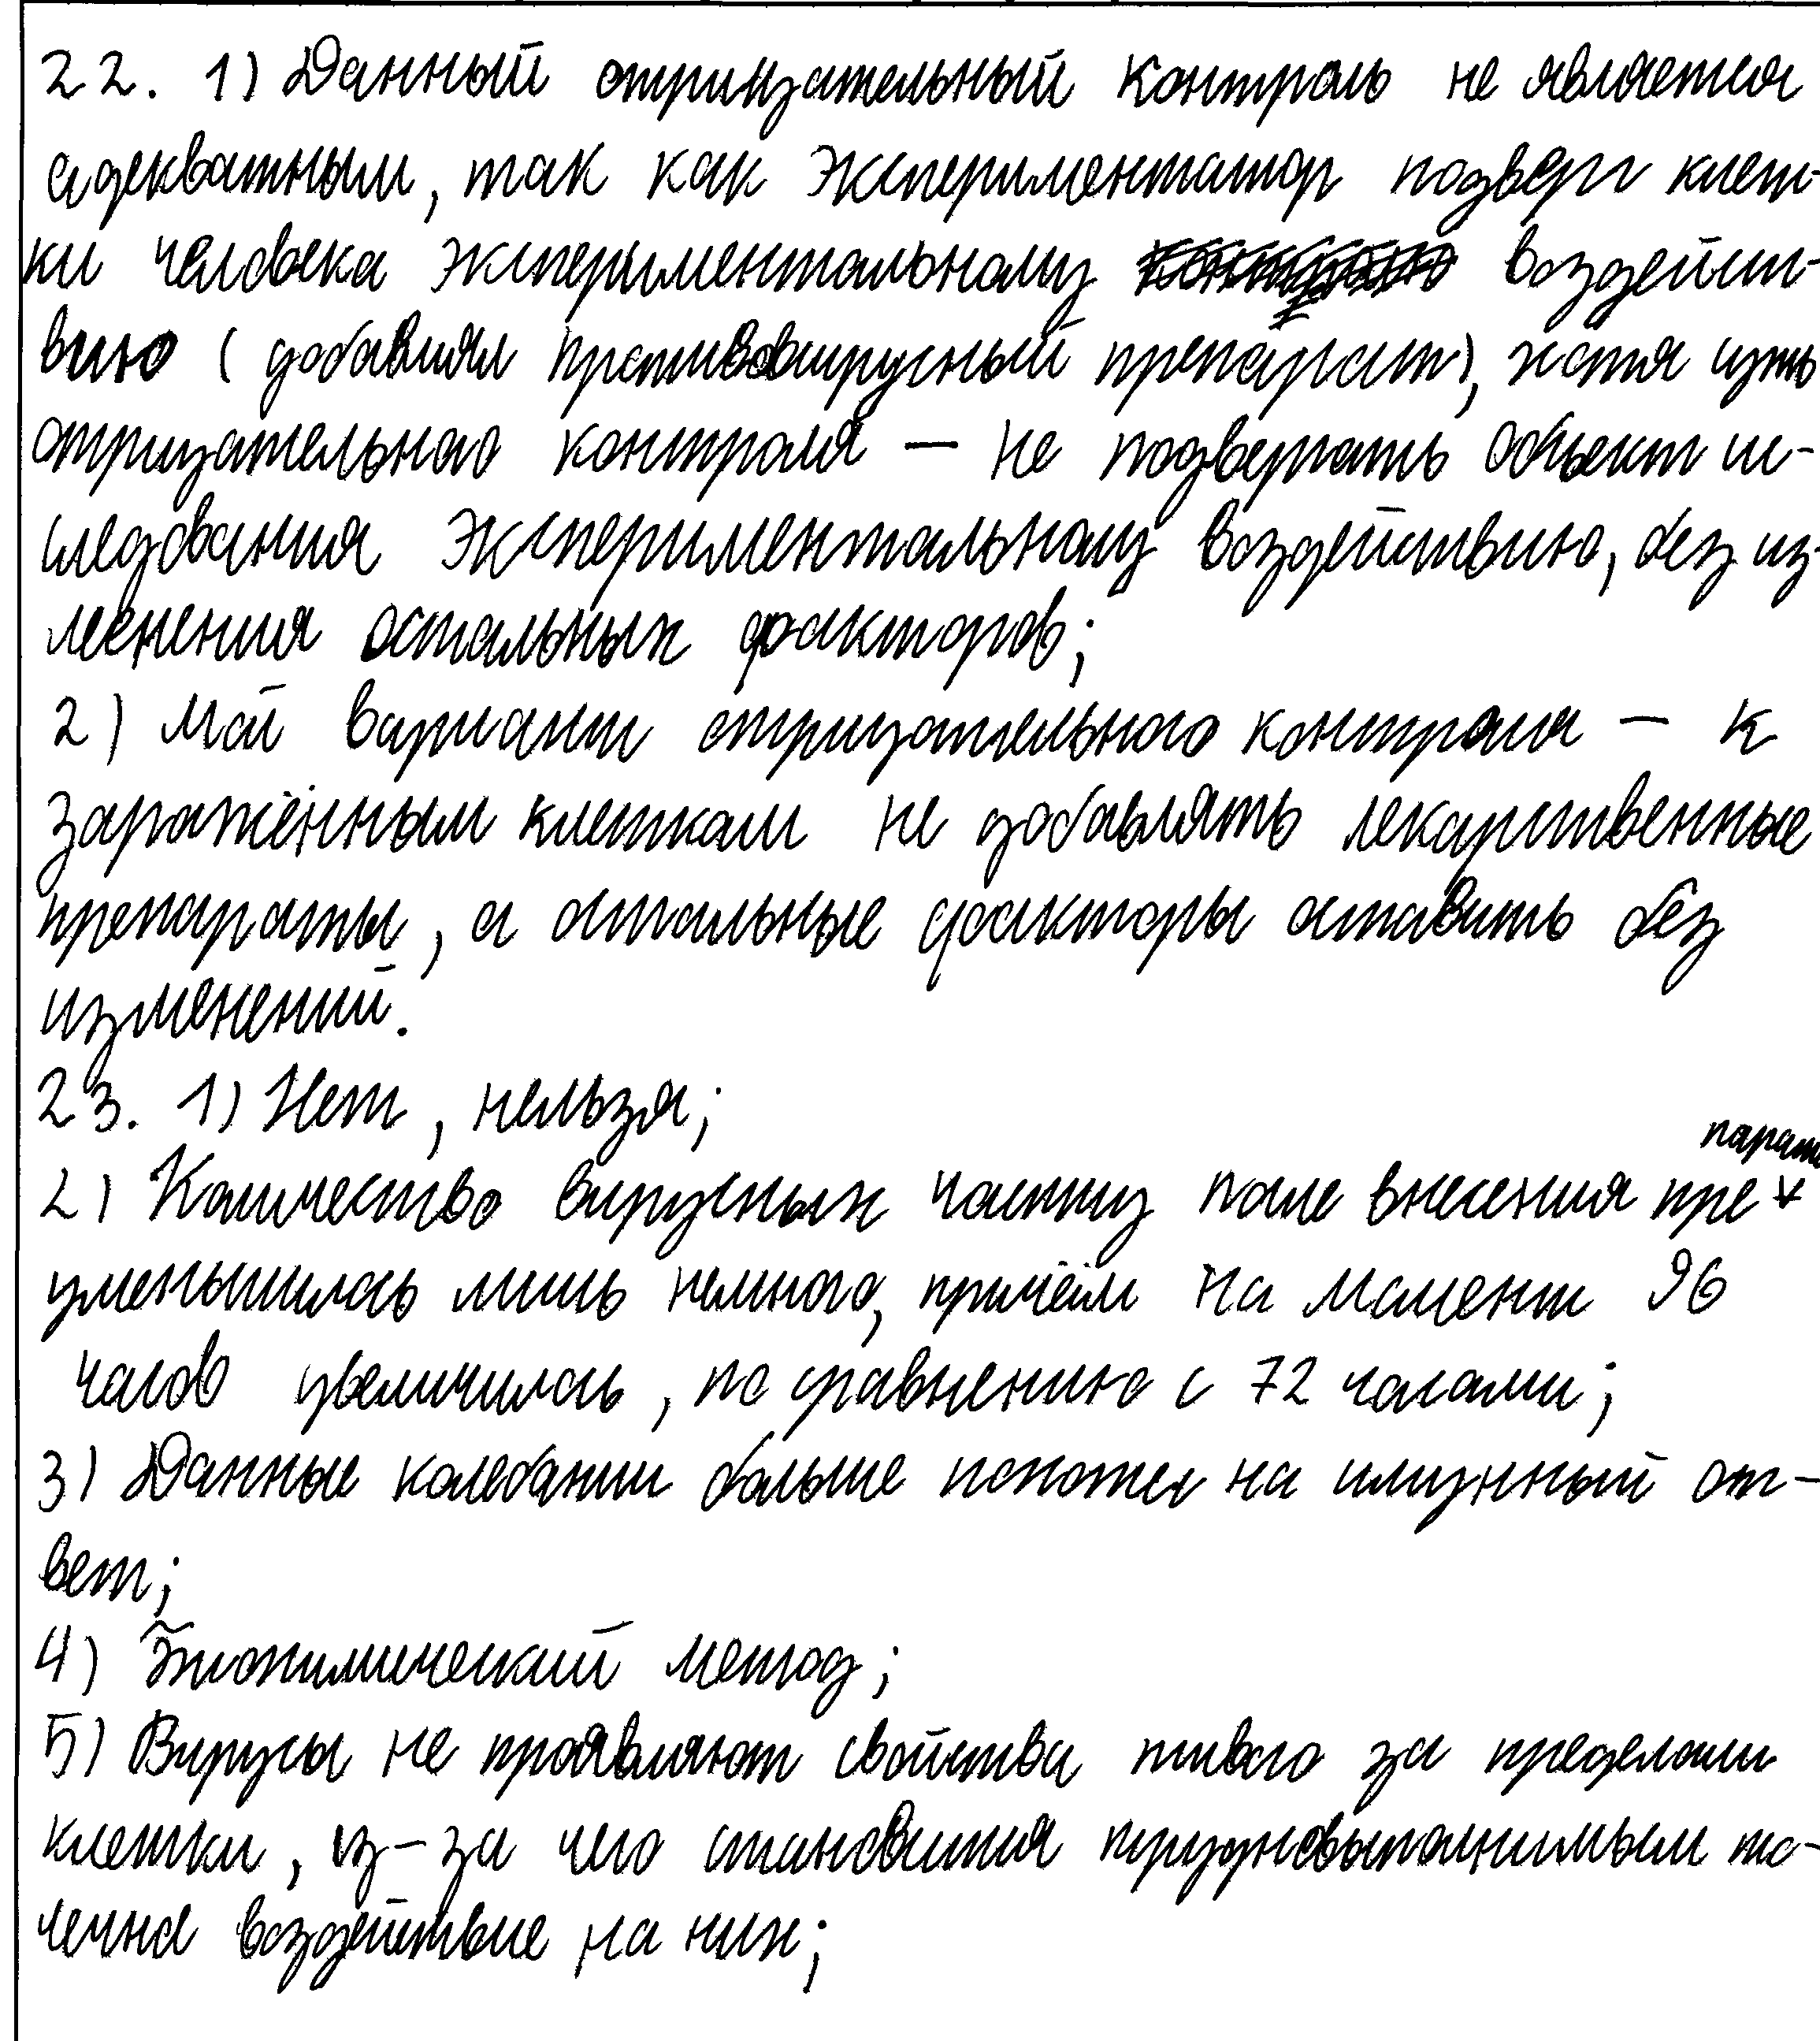 22. 1) Данный отрицательный контроль не является
адекватным, так как экспериментатор подверг клет-
ки человека экспериментальному воздейст-
вию (добавлял противовирусный препарат), хотя суть
отрицательного контроля — не подвергать объект ис-
следования экспериментальному воздействию, без из-
менения остальных факторов;
2) Мой вариант отрицательного контроля — к
заражённым клеткам не добавлять лекарственные
препараты, а остальные факторы оставить без
изменений.
23. 1) Нет, нельзя;
2) Количество вирусных частиц после внесения препарата
уменьшилось лишь немного, причём на момент 96
часов увеличилось, по сравнению с 72 часами;
3) Данные колебании больше похоже на имунный от-
вет;
4) Биохимический метод;
5) Вирусы не проявляют свойства живого за пределами
клетки, из-за чего становится трудновыполнимым то-
чечное воздействие на них;